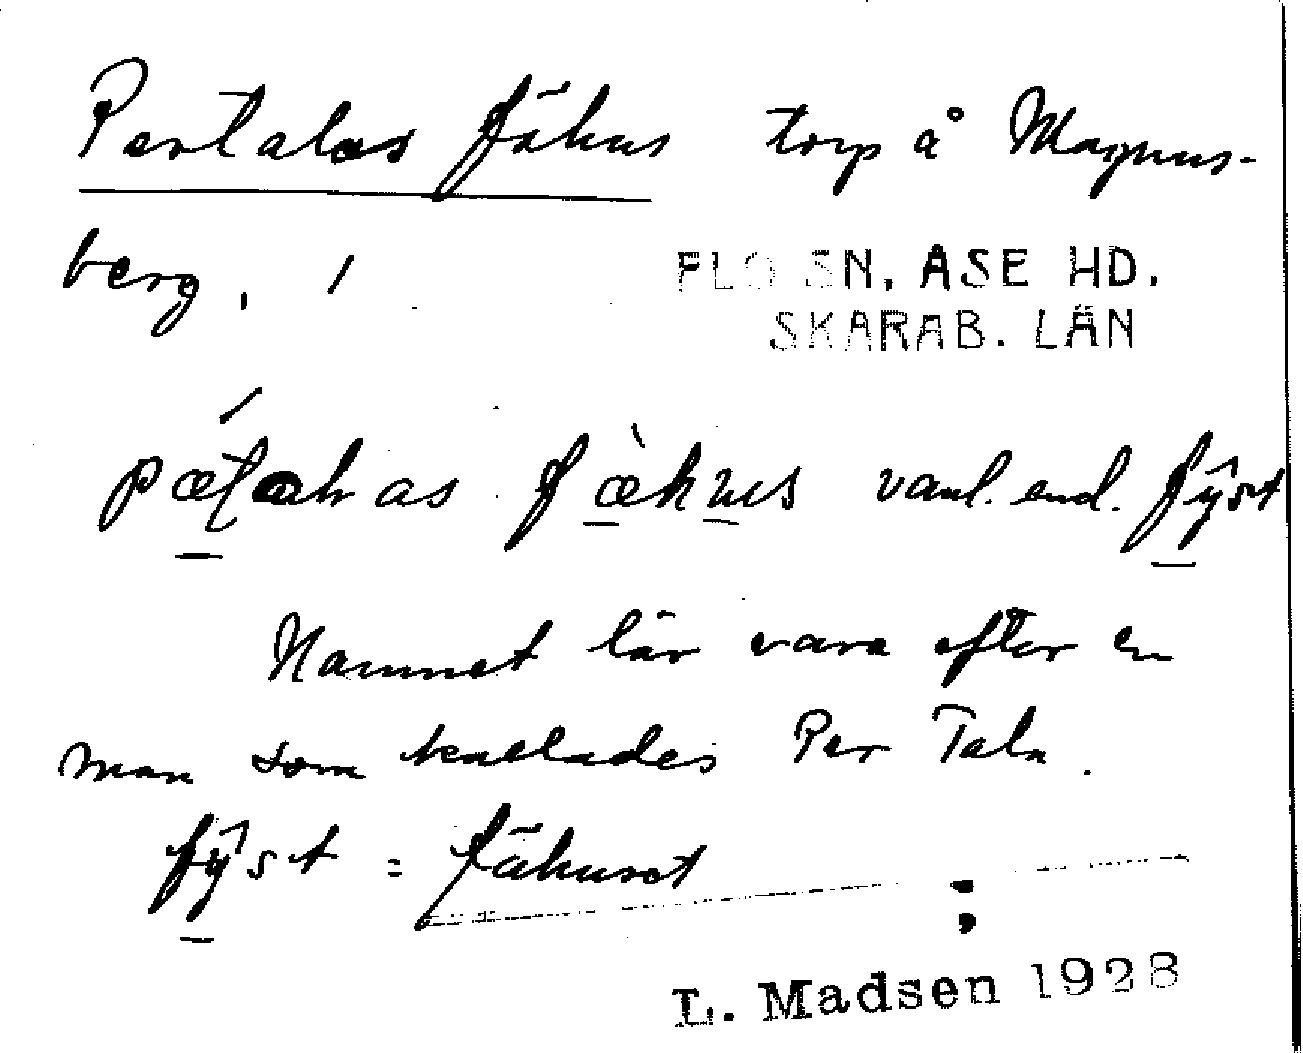 Pertalas fähus torp å Magnus-
berg. 1
FLO SN. ASE HD.
SKARAB. LÄN
fækus vanl. end. fŷst
Namnet lär vara efter en
man som kallades Per Tala.
fŷst = fähuset
L. Madsen 1928